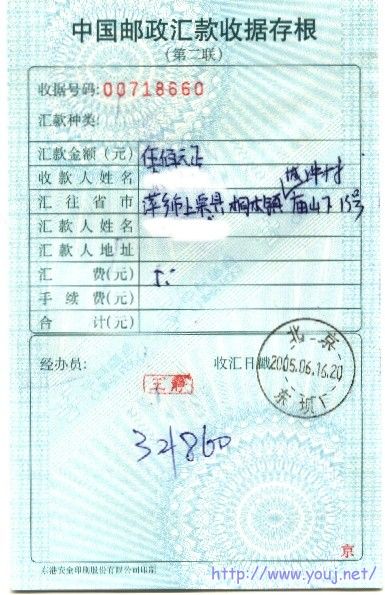 中国邮政汇款收据存根
(第二联)
收据号码:00718660
汇款种类:
汇款金额(元) 伍佰元正
收款人姓名
城冲村
汇往省市 萍乡市上栗县桐木镇 庙山下15号
汇款人姓名
汇款人地址
汇 费(元)
手续费(元)
合 计(元)
经办员: 收汇日戳
王静
北京
2005.06.16.20
32860
京
东港安全印刷股份有限公司印制
http://www.youj.net/